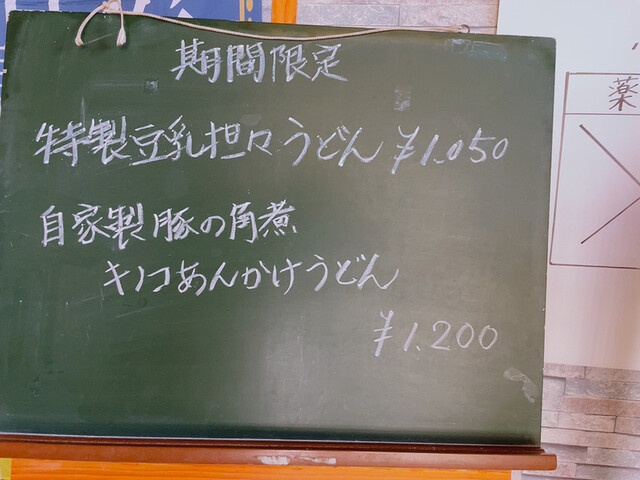 期間限定
特製豆乳担々うどん ¥1.050
自家製豚の角煮
キノコあんかけうどん
¥1.200
薬